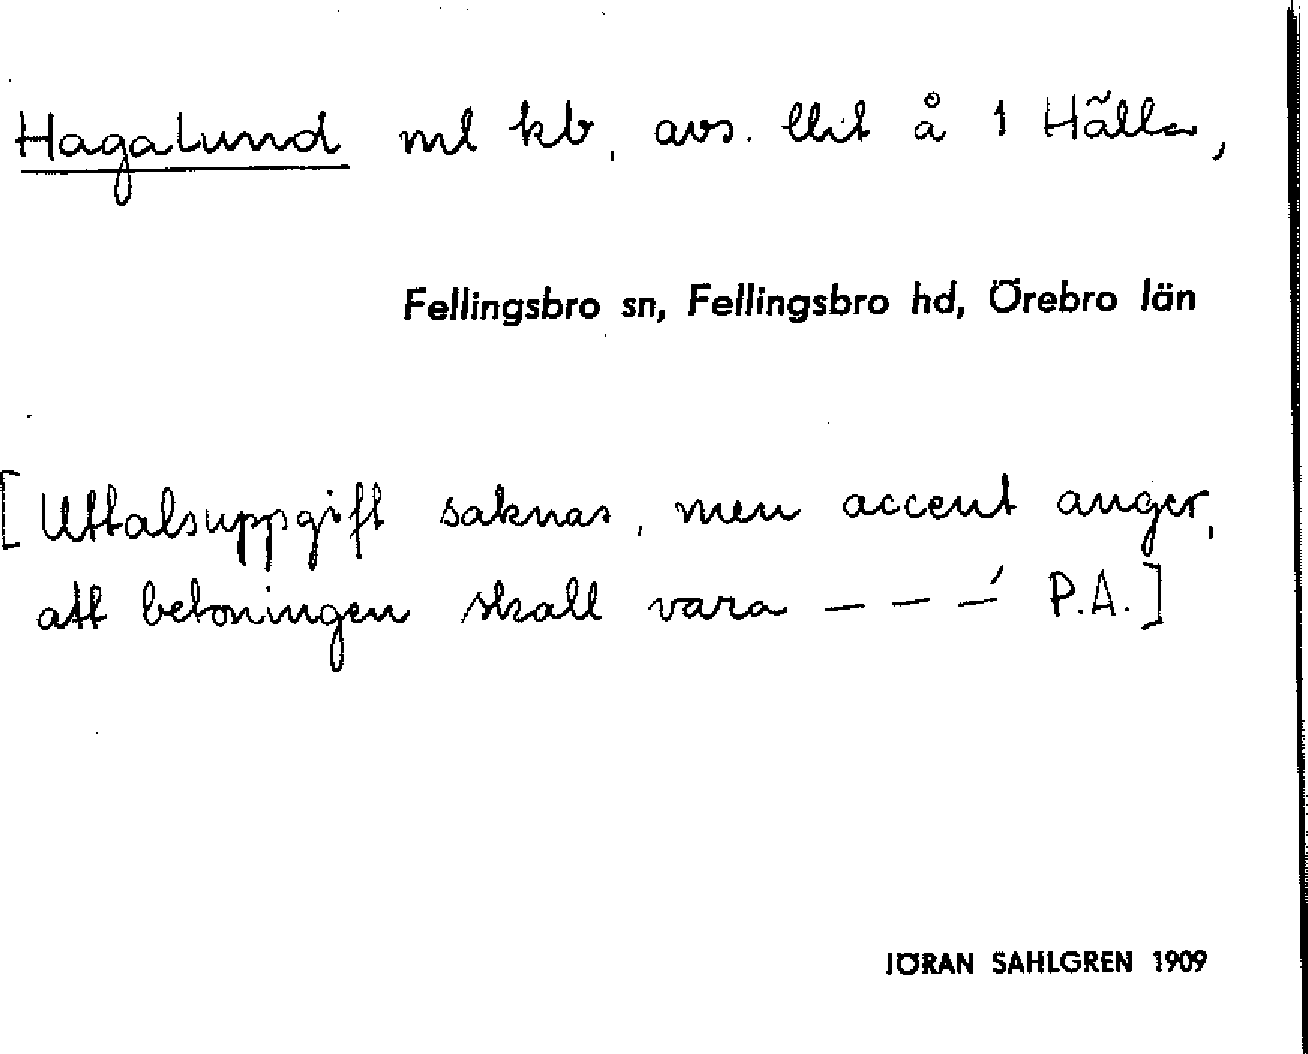 Hagalund ml kb, avs. lht å 1 Hälla,
Fellingsbro sn, Fellingsbro hd, Örebro län
[Uttalsuppgift saknas, men accent anger,
att betoningen skall vara – – –́ P.A.]
JÖRAN SAHLGREN 1909